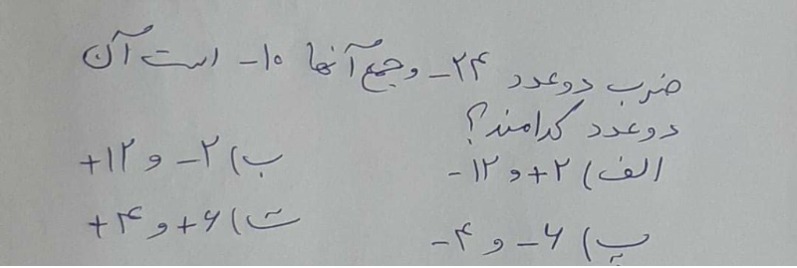 ضرب دو عدد ۲۴- و جمع آنها ۱۰- است آن
دو عدد کدامند؟
الف) ۲+ و ۱۲-
ب) ۲- و ۱۲+
پ) ۶- و ۴-
ت) ۶+ و ۴+